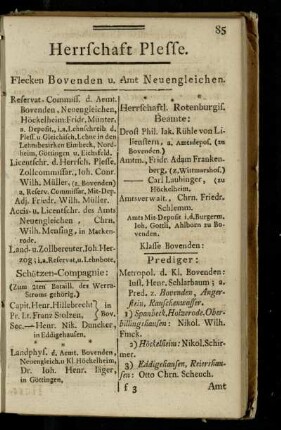 85
Herrschaft Plesse.
Flecken Bovenden u. Amt Neuengleichen.
Reservat-Commiss. d. Aemt.
Bovenden, Neuengleichen,
Höckelheim: Fridr. Münter,
u. Deposit., i.a. Lehnschreib. d.
Pless. u. Gleichisch. Lehne in den
Lehnsbezirken Eimbeck, Nord-
heim, Göttingen u. Eichsfeld.
Licentschr. d. Herrsch. Plesse,
Zollcommissar, Joh. Conr.
Wilh. Müller, (z. Bovenden)
u. Reserv. Commissar, Mit-Dep.
Adj. Friedr. Wilh. Müller.
Accis- u. Licentschr. des Amts
Neuengleichen, Chrn.
Wilh. Mensing, in Macken-
rode.
Land- u. Zollbereuter, Joh. Her-
zog; i.a. Reservat, u. Lehnbote.
Schützen-Compagnie:
(Zum 2ten Bataill. des Werra-
Stroms gehörig.)
Capit. Henr. Hillebrecht } in
Pr. Lt. Franz Stolzeit, } Bov.
Sec.— Henr. Nih. Duncker,
in Eddigehausen.
* *
Landphys. d. Aemt. Bovenden,
Neuengleich. u. Kl. Höckelheim,
Dr. Joh. Henr. Jäger,
in Göttingen.
* * *
Herrschaftl. Rotenburgis.
Beamte:
Drost Phil. Jak. Rühle von Li-
lienstern, u. Amtsdepos. (zu
Bovenden.)
Amtm., Fridr. Adam Franken-
berg, (z. Wittmershof.)
— Carl Laubinger, (zu
Höckelheim.
Amtsverwalt., Chrn. Friedr.
Schlemm.
Amts Mit-Deposit i. d. Burgerm.
Joh. Gottl. Ahlborn zu Bo-
venden.
Klasse Bovenden:
Prediger:
Metropol. d. Kl. Bovenden:
Just. Henr. Schlarbaum; a.
Pred. z. Bovenden, Anger-
stein, Rauschenwasser.
1) Spanbeck, Holzerode, Ober-
billingshausen: Nikol. Wilh.
Finck.
2) Höckelheim: Nikol. Schir-
mer.
3) Eddigehausen, Reiershau-
sen: Otto Chrn. Scheuch.
f 3
Amt